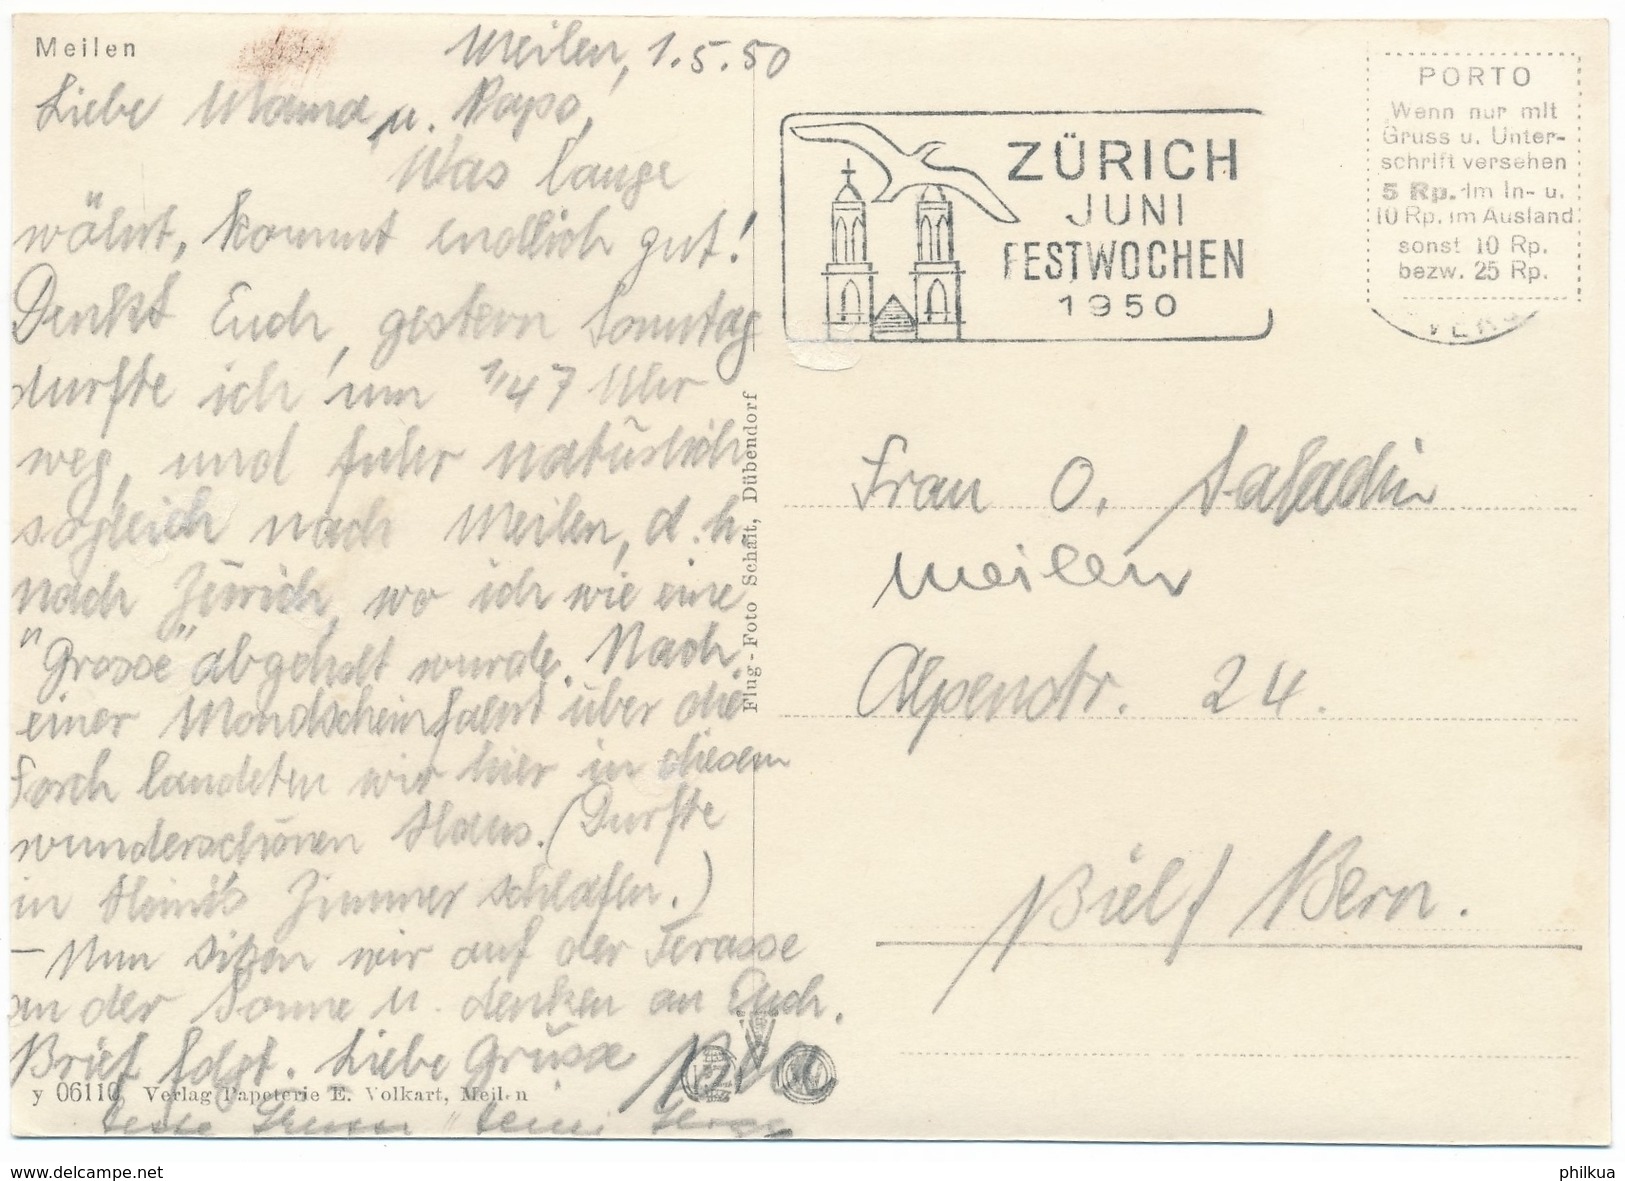 Meilen
Meilen, 1.5.50
Liebe Mama u. Papa,
Was lange
währt, kommt endlich gut!
Denkt Euch, gestern Sonntag
durfte ich um 1/4 7 Uhr
weg, und fuhr natürlich
sogleich nach Meilen, d.h.
nach Zürich, wo ich wie eine
"Grosse" abgeholt wurde. Nach
einer Mondscheinfahrt über die
Forch landeten wir hier in diesem
wunderschönen Haus. (Durfte
in Heini's Zimmer schlafen.)
– Nun sitzen wir auf der Terasse
an der Sonne u. denken an Euch.
Brief folgt. Liebe Grüsse
y 06110 Verlag Papeterie E. Volkart, Meilen
Flug-Foto Schait, Dübendorf
ZÜRICH
JUNI
FESTWOCHEN
1950
PORTO
Wenn nur mit
Gruss u. Unter-
schrift versehen
5 Rp. im In- u.
10 Rp. im Ausland
sonst 10 Rp.
bezw. 25 Rp.
Frau O. Saladin
Meilen
Alpenstr. 24.
Biel / Bern.
www.delcampe.net
philkua